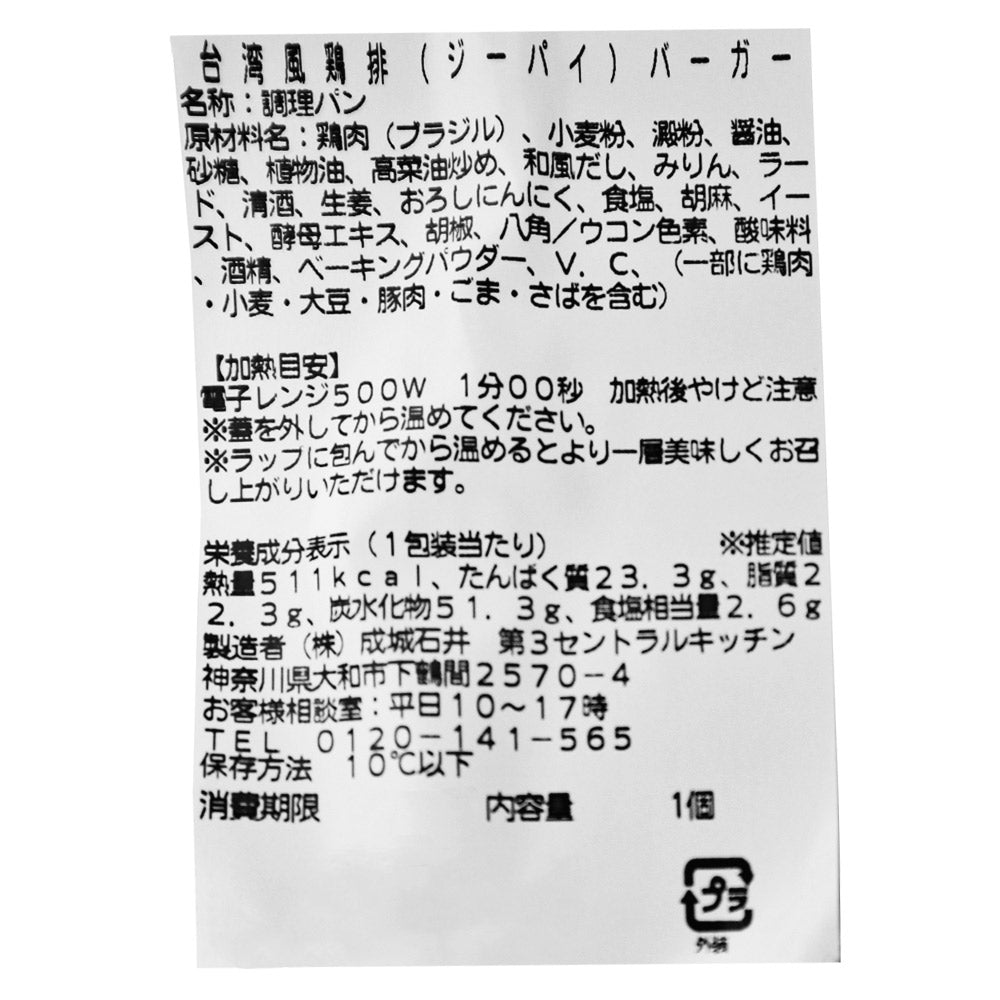 台湾風鶏排(ジーパイ)バーガー
名称:調理パン
原材料名:鶏肉(ブラジル)、小麦粉、澱粉、醤油、
砂糖、植物油、高菜油炒め、和風だし、みりん、ラー
ド、清酒、生姜、おろしにんにく、食塩、胡麻、イー
スト、酵母エキス、胡椒、八角/ウコン色素、酸味料
、酒精、ベーキングパウダー、V.C、(一部に鶏肉
・小麦・大豆・豚肉・ごま・さばを含む)
【加熱目安】
電子レンジ500W 1分00秒 加熱後やけど注意
※蓋を外してから温めてください。
※ラップに包んでから温めるとより一層美味しくお召
し上がりいただけます。
栄養成分表示(1包装当たり) ※推定値
熱量511kcal、たんぱく質23.3g、脂質2
2.3g、炭水化物51.3g、食塩相当量2.6g
製造者(株)成城石井 第3セントラルキッチン
神奈川県大和市下鶴間2570-4
お客様相談室:平日10~17時
TEL 0120-141-565
保存方法 10℃以下
消費期限 内容量 1個
プラ
外装